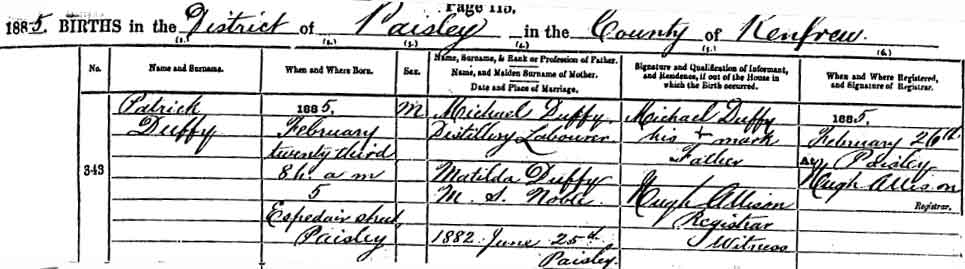 Page 113.
1885. BIRTHS in the District of Paisley in the County of Renfrew.
(1.) (2.) (3.) (4.) (5.) (6.)
No.
Name and Surname.
When and Where Born.
Sex.
Name, Surname, & Rank or Profession of Father.
Name, and Maiden Surname of Mother.
Date and Place of Marriage.
Signature and Qualification of Informant,
and Residence, if out of the House in
which the Birth occurred.
When and Where Registered,
and Signature of Registrar.
343
Patrick
Duffy
1885.
February
twenty third
8 h. a m
5
Espedair street
Paisley
M
Michael Duffy.
Distillery Labourer
Matilda Duffy
M. S. Noble.
1882. June 25th
Paisley.
Michael Duffy
his + mark
Father
Hugh Allison
Registrar
Witness
1885.
February 26th
At Paisley
Hugh Allison
Registrar.